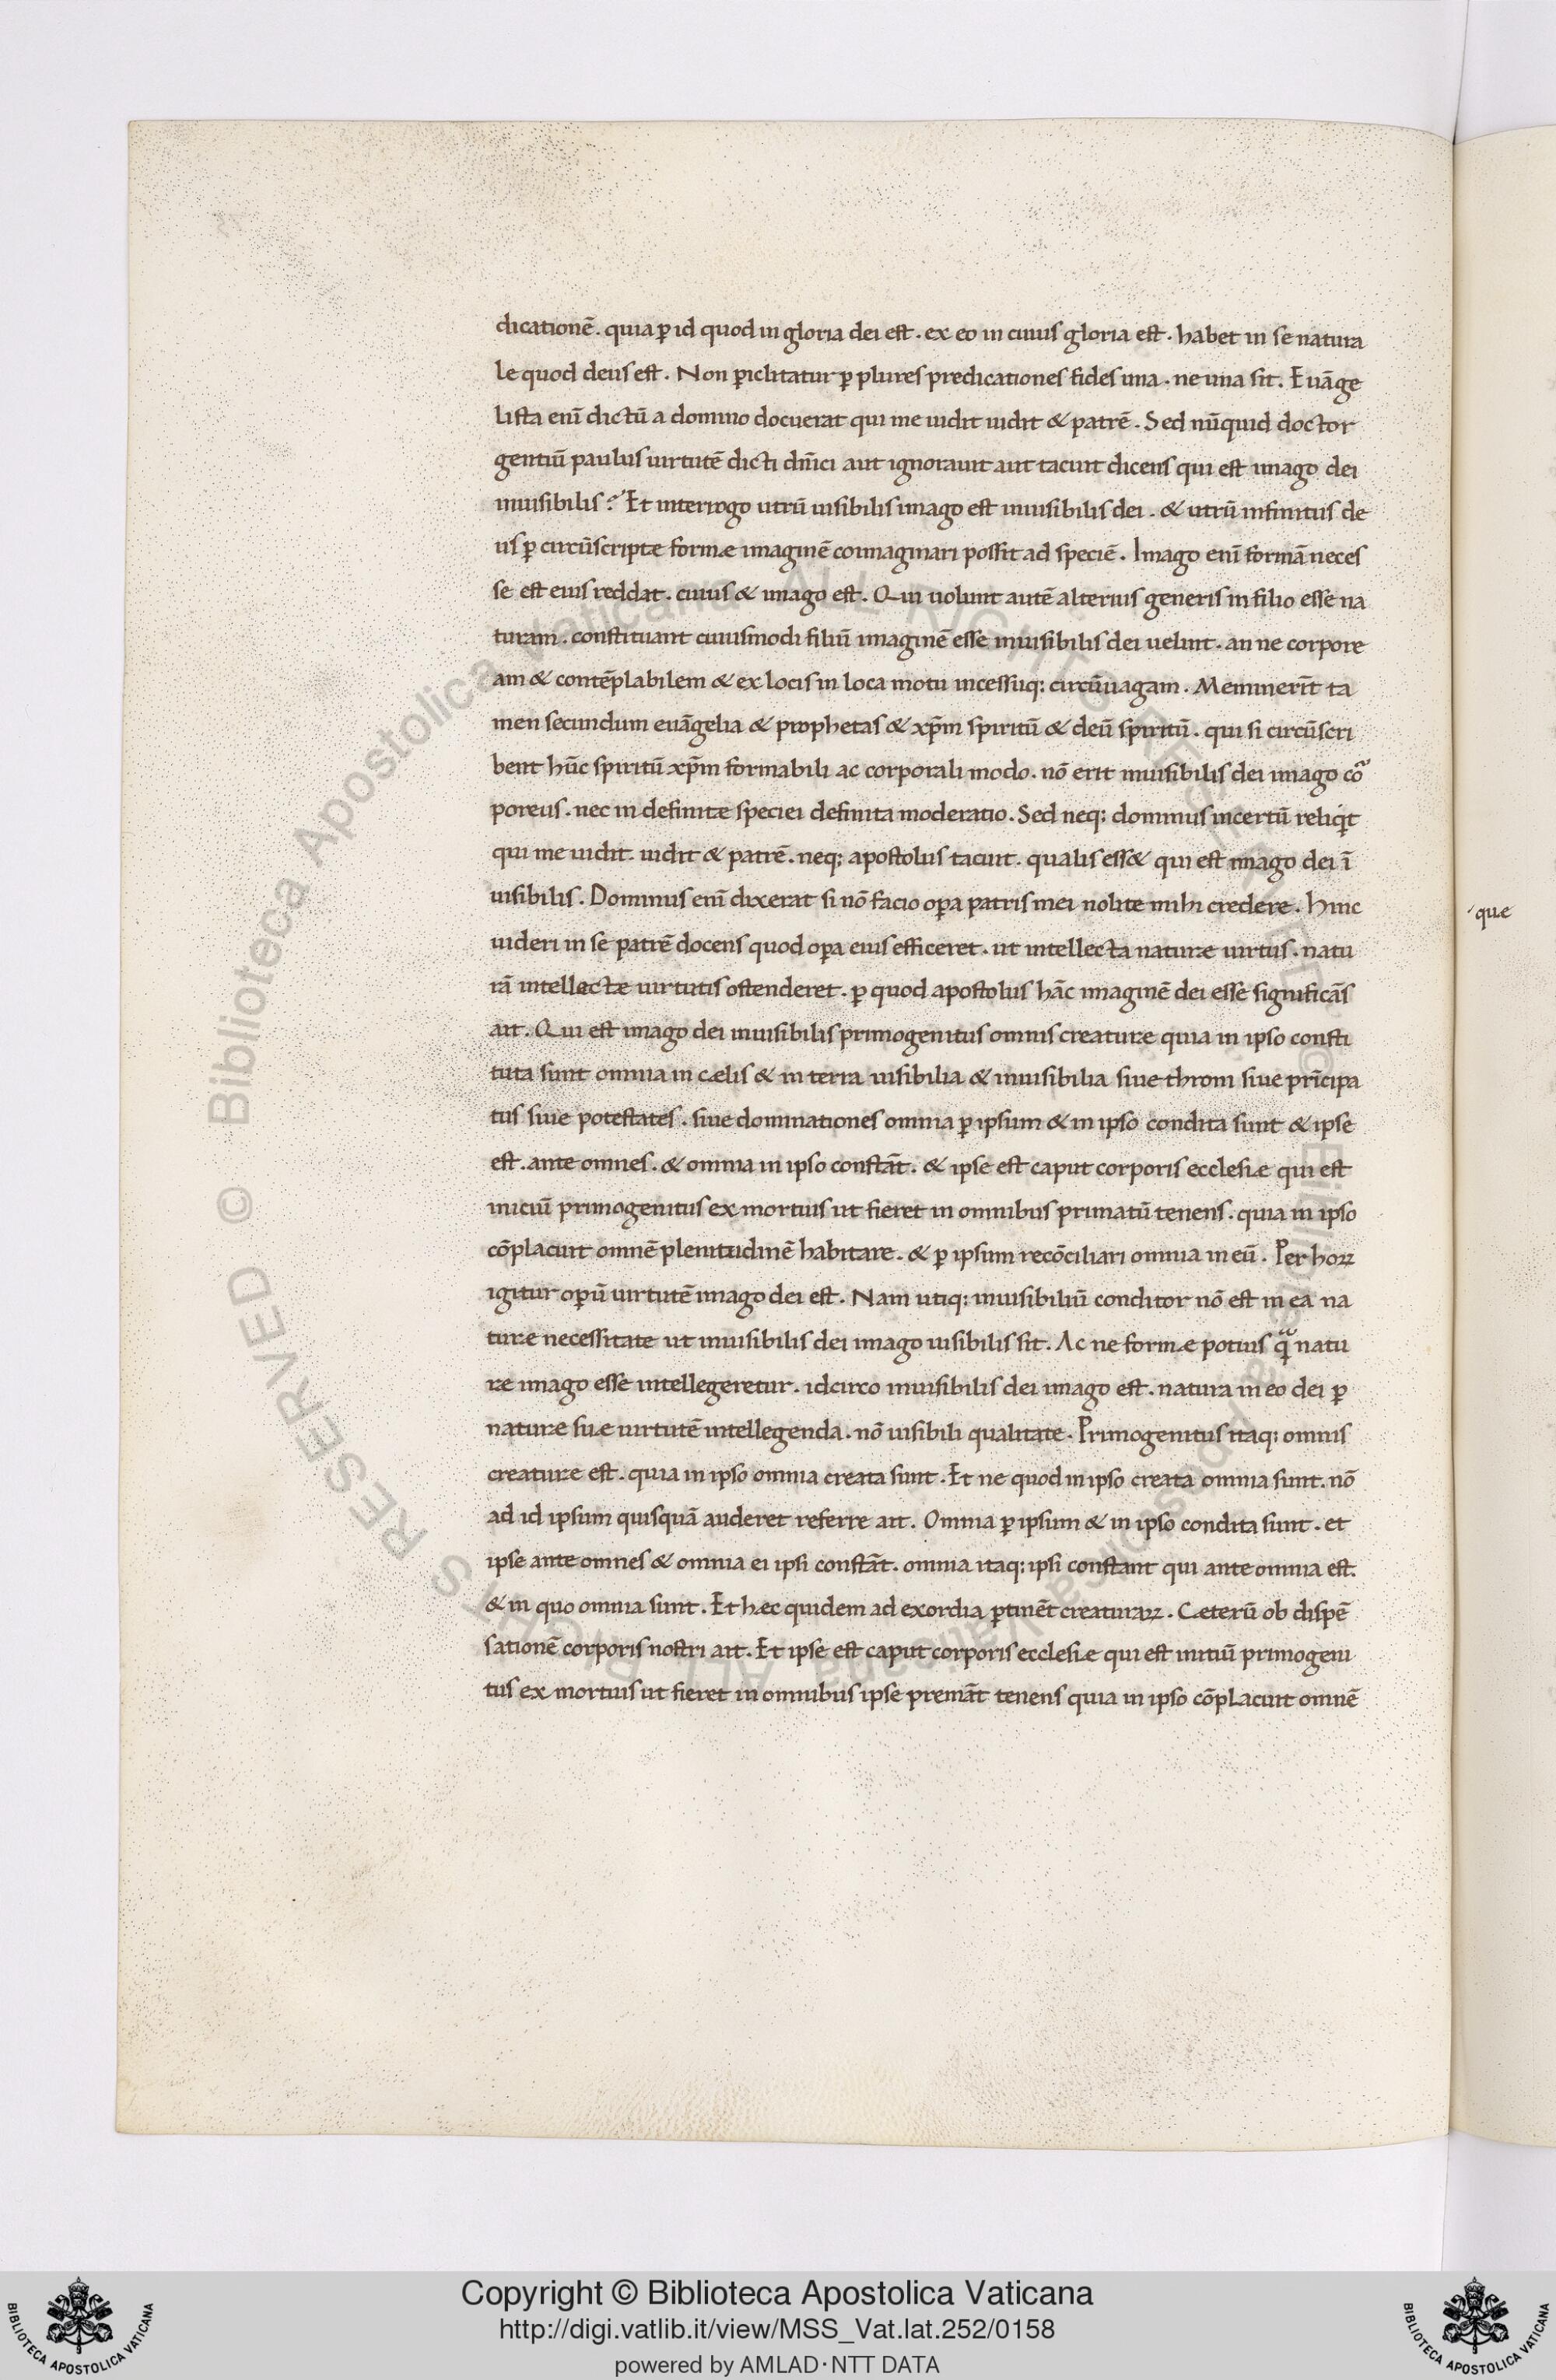 dicationē. quia ꝑ id quod in gloria dei est. ex eo in cuius gloria est. habet in se natura
le quod deus est. Non ꝑiclitatur ꝑ plures predicationes fides una. ne una sit. Euāge
lista enī dictū a domino docuerat qui me uidit uidit & patrē. Sed nūquid doctor
gentiū paulus uirtutē dicti dn̄ici aut ignorauit aut tacuit dicens qui est imago dei
inuisibilis? Et interrogo utrū uisibilis imago est inuisibilis dei. & utrū infinitus de
us ꝑ circūscriptæ formæ imaginē coimaginari possit ad speciē. Imago enī formā neces
se est eius reddat. cuius & imago est. Qui uolunt autē alterius generis in filio esse na
turam. constituant cuiusmodi filiū imaginē esse inuisibilis dei uelint. an ne corpore
am & contēplabilem & ex locis in loca motu incessuq; circūuagam. Meminerīt ta
men secundum euāgelia & prophetas & xp̄m spiritū & deū spiritū. qui si circūscri
bent hūc spiritū xp̄m formabili ac corporali modo. nō erit inuisibilis dei imago cō
poreus. nec indefinitæ speciei definita moderatio. Sed neq; dominus incertū reliqt
qui me uidit. uidit & patrē. neq; apostolus tacuit. qualis ess& qui est imago dei ī
uisibilis. Dominus enī dixerat si nō facio oꝑa patris mei nolite mihi credere. Hinc
uideri in se patrē docens quod oꝑa eius efficeret. ut intellecta naturæ uirtus. natu
rā intellectæ uirtutis ostenderet. ꝑ quod apostolus hāc imaginē dei esse significās
ait. Qui est imago dei inuisibilis primogenitus omnis creaturæ quia in ipso consti
tuta sunt omnia in cælis & in terra uisibilia & inuisibilia siue throni siue prīcipa
tus siue potestates. siue dominationes omnia ꝑ ipsum & in ipso condita sunt & ipse
est. ante omnes. & omnia in ipso constāt. & ipse est caput corporis ecclesiæ qui est
iniciū primogenitus ex mortuis ut fieret in omnibus primatū tenens. quia in ipso
cōplacuit omnē plenitudinē habitare. & ꝑ ipsum recōciliari omnia in eū. Per hoꝝ
igitur oꝑū uirtutē imago dei est. Nam utiq; inuisibiliū conditor nō est in ea na
turæ necessitate ut inuisibilis dei imago uisibilis sit. Ac ne formæ potius q̄ natu
ræ imago esse intellegeretur. idcirco inuisibilis dei imago est. natura in eo dei ꝑ
naturæ suæ uirtutē intellegenda. nō uisibili qualitate. Primogenitus itaq; omnis
creaturæ est. quia in ipso omnia creata sunt. Et ne quod in ipso creata omnia sunt. nō
ad id ipsum quisquā auderet referre ait. Omnia ꝑ ipsum & in ipso condita sunt. et
ipse ante omnes & omnia ei ipsi constāt. omnia itaq; ipsi constant qui ante omnia est.
& in quo omnia sunt. Et hæc quidem ad exordia ꝑtinēt creaturaꝝ. Cæterū ob dispē
sationē corporis nostri ait. Et ipse est caput corporis ecclesiæ qui est initiū primogeni
tus ex mortuis ut fieret in omnibus ipse premāt tenens quia in ipso cōplacuit omnē
que
Copyright © Biblioteca Apostolica Vaticana
http://digi.vatlib.it/view/MSS_Vat.lat.252/0158
powered by AMLAD·NTT DATA